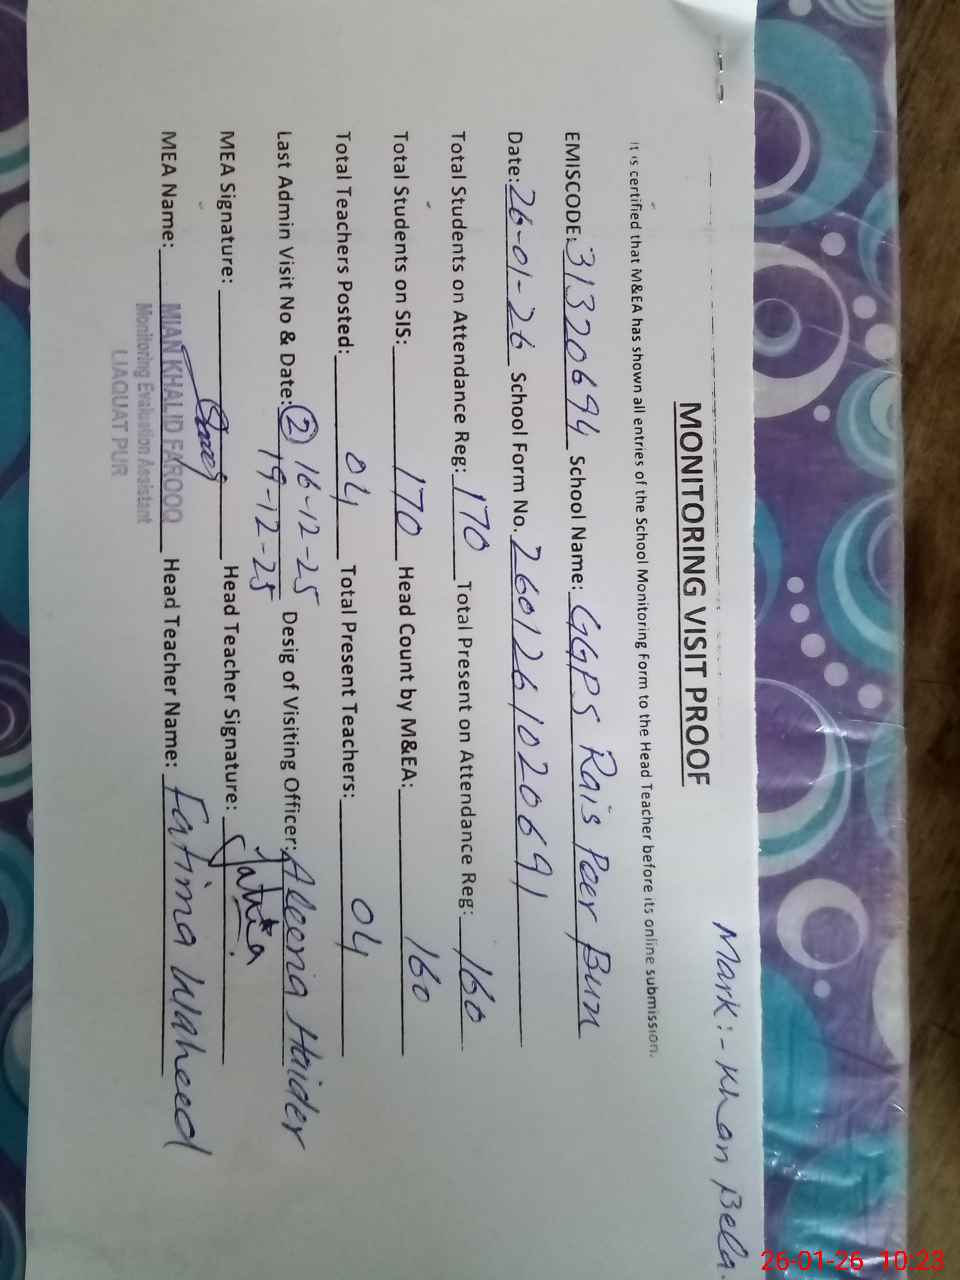 Mark:- Khan Bela.
MONITORING VISIT PROOF
It is certified that M&EA has shown all entries of the School Monitoring Form to the Head Teacher before its online submission.
EMISCODE: 31320694 School Name: GGPS Rais Peer Bux
Date: 26-01-26 School Form No. 2601261020691
Total Students on Attendance Reg: 170 Total Present on Attendance Reg: 160
Total Students on SIS: 170 Head Count by M&EA: 160
Total Teachers Posted: 04 Total Present Teachers: 04
Last Admin Visit No & Date: (2) 16-12-25 Desig of Visiting Officer: Aleena Haider
19-12-25
MEA Signature: Head Teacher Signature: Fatima
MEA Name: MIAN KHALID FAROOQ Head Teacher Name: Fatima Waheed
Monitoring Evaluation Assistant
LIAQUAT PUR
26-01-26 10:23